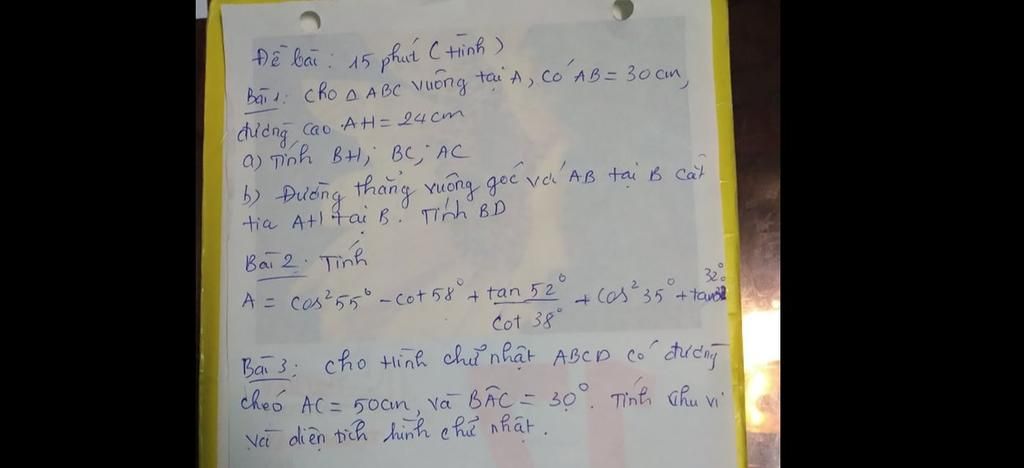 Đề bài: 15 phút (Hình)
Bài 1: Cho Δ ABC vuông tại A, có AB = 30 cm,
đường cao AH = 24 cm
a) Tính BH; BC; AC
b) Đường thẳng vuông góc với AB tại B cắt
tia AH tại B. Tính BD
Bài 2. Tính
A = cos²55° - cot 58° + tan 52° / cot 38° + cos²35° + tan 32°
Bài 3: Cho Hình chữ nhật ABCD có đường
chéo AC = 50cm, và BÂC = 30°. Tính chu vi
và diện tích hình chữ nhật.